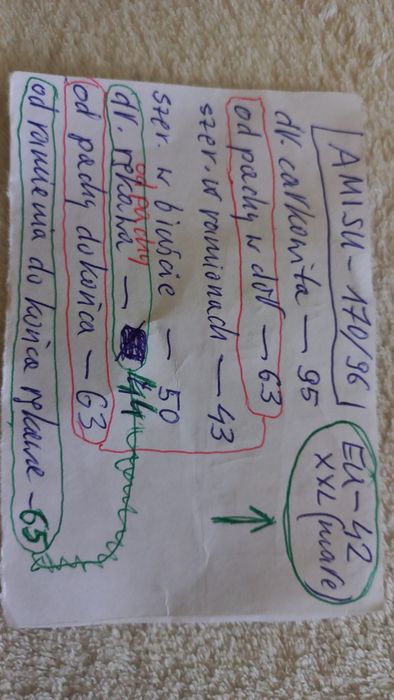 AMISU - 170/96
EU - 42
XXL (małe)
dł. całkowita - 95
od pachy w dół - 63
szer. w ramionach - 43
szer. w biuście - 50
od pachy
dł. rękawa - 44
od pachy do końca - 63
od ramienia do końca rękawa - 65